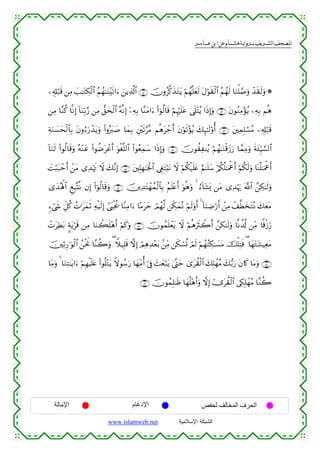 المصحف الشريف برواية هشام عن ابن عامر
۞ وَلَقَدْ وَصَّلْنَا لَهُمُ ٱلْقَوْلَ لَعَلَّهُمْ يَتَذَكَّرُونَ ۝ ٱلَّذِينَ ءَاتَيْنَٰهُمُ ٱلْكِتَٰبَ مِن قَبْلِهِۦ
هُم بِهِۦ يُؤْمِنُونَ ۝ وَإِذَا يُتْلَىٰ عَلَيْهِمْ قَالُوٓا۟ ءَامَنَّا بِهِۦٓ إِنَّهُ ٱلْحَقُّ مِن رَّبِّنَآ إِنَّا كُنَّا مِن
قَبْلِهِۦ مُسْلِمِينَ ۝ أُو۟لَٰٓئِكَ يُؤْتَوْنَ أَجْرَهُم مَّرَّتَيْنِ بِمَا صَبَرُوا۟ وَيَدْرَءُونَ بِٱلْحَسَنَةِ
ٱلسَّيِّئَةَ وَمِمَّا رَزَقْنَٰهُمْ يُنفِقُونَ ۝ وَإِذَا سَمِعُوا۟ ٱللَّغْوَ أَعْرَضُوا۟ عَنْهُ وَقَالُوا۟ لَنَآ
أَعْمَٰلُنَا وَلَكُمْ أَعْمَٰلُكُمْ سَلَٰمٌ عَلَيْكُمْ لَا نَبْتَغِى ٱلْجَٰهِلِينَ ۝ إِنَّكَ لَا تَهْدِى مَنْ أَحْبَبْتَ
وَلَٰكِنَّ ٱللَّهَ يَهْدِى مَن يَشَآءُ ۚ وَهُوَ أَعْلَمُ بِٱلْمُهْتَدِينَ ۝ وَقَالُوٓا۟ إِن نَّتَّبِعِ ٱلْهُدَىٰ
مَعَكَ نُتَخَطَّفْ مِنْ أَرْضِنَآ ۚ أَوَلَمْ نُمَكِّن لَّهُمْ حَرَمًا ءَامِنًا يُجْبَىٰٓ إِلَيْهِ ثَمَرَٰتُ كُلِّ شَىْءٍ
رِّزْقًا مِّن لَّدُنَّا وَلَٰكِنَّ أَكْثَرَهُمْ لَا يَعْلَمُونَ ۝ وَكَمْ أَهْلَكْنَا مِن قَرْيَةٍۭ بَطِرَتْ
مَعِيشَتَهَا ۖ فَتِلْكَ مَسَٰكِنُهُمْ لَمْ تُسْكَن مِّنۢ بَعْدِهِمْ إِلَّا قَلِيلًا ۖ وَكُنَّا نَحْنُ ٱلْوَٰرِثِينَ
۝ وَمَا كَانَ رَبُّكَ مُهْلِكَ ٱلْقُرَىٰ حَتَّىٰ يَبْعَثَ فِىٓ أُمِّهَا رَسُولًا يَتْلُوا۟ عَلَيْهِمْ ءَايَٰتِنَا ۚ وَمَا
كُنَّا مُهْلِكِى ٱلْقُرَىٰٓ إِلَّا وَأَهْلُهَا ظَٰلِمُونَ ۝
الحرف المخالف لحفص الإدغام الإمالة
الشبكة الإسلامية www.islamweb.net